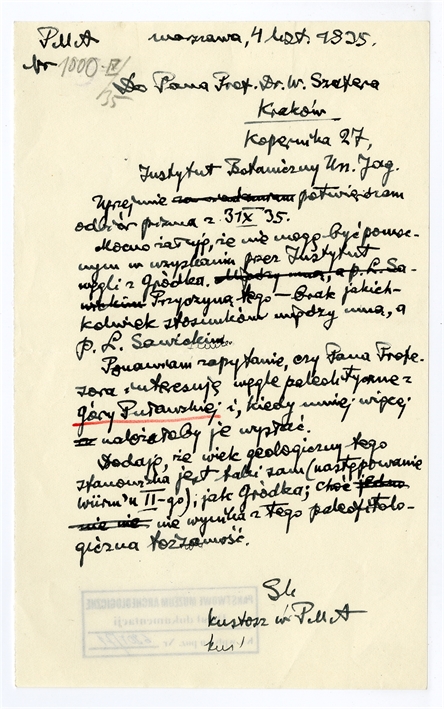 PMA Warszawa, 4 list. 1935.
Nr 1000-IV/35
Do Pana Prof. Dr. W. Szafera
Kraków
Kopernika 27,
Instytut Botaniczny Un. Jag.
Uprzejmie potwierdzam
odbiór pisma z 31 X 35.
Mocno żałuję, że nie mogę być pomoc-
nym w uzyskaniu przez Instytut
węgli z Gródka. Między mną, a p. L. Sa-
wickim Przyczyną tego – brak jakich-
kolwiek stosunków między mną, a
p. L. Sawickim.
Ponawiam zapytanie, czy Pana Profe-
sora interesują węgle paleolityczne z
Góry Puławskiej i, kiedy mniej więcej
należałoby je wysłać.
Dodaję, że wiek geologiczny tego
stanowiska jest taki sam (następowanie
Würm'u II-go); jak Gródka; choć jedno
nie nie wynika z tego paleofitolo-
giczna tożsamość.
Sk
kustosz PMA
kus
PAŃSTWOWE MUZEUM ARCHEOLOGICZNE
dokumentacji